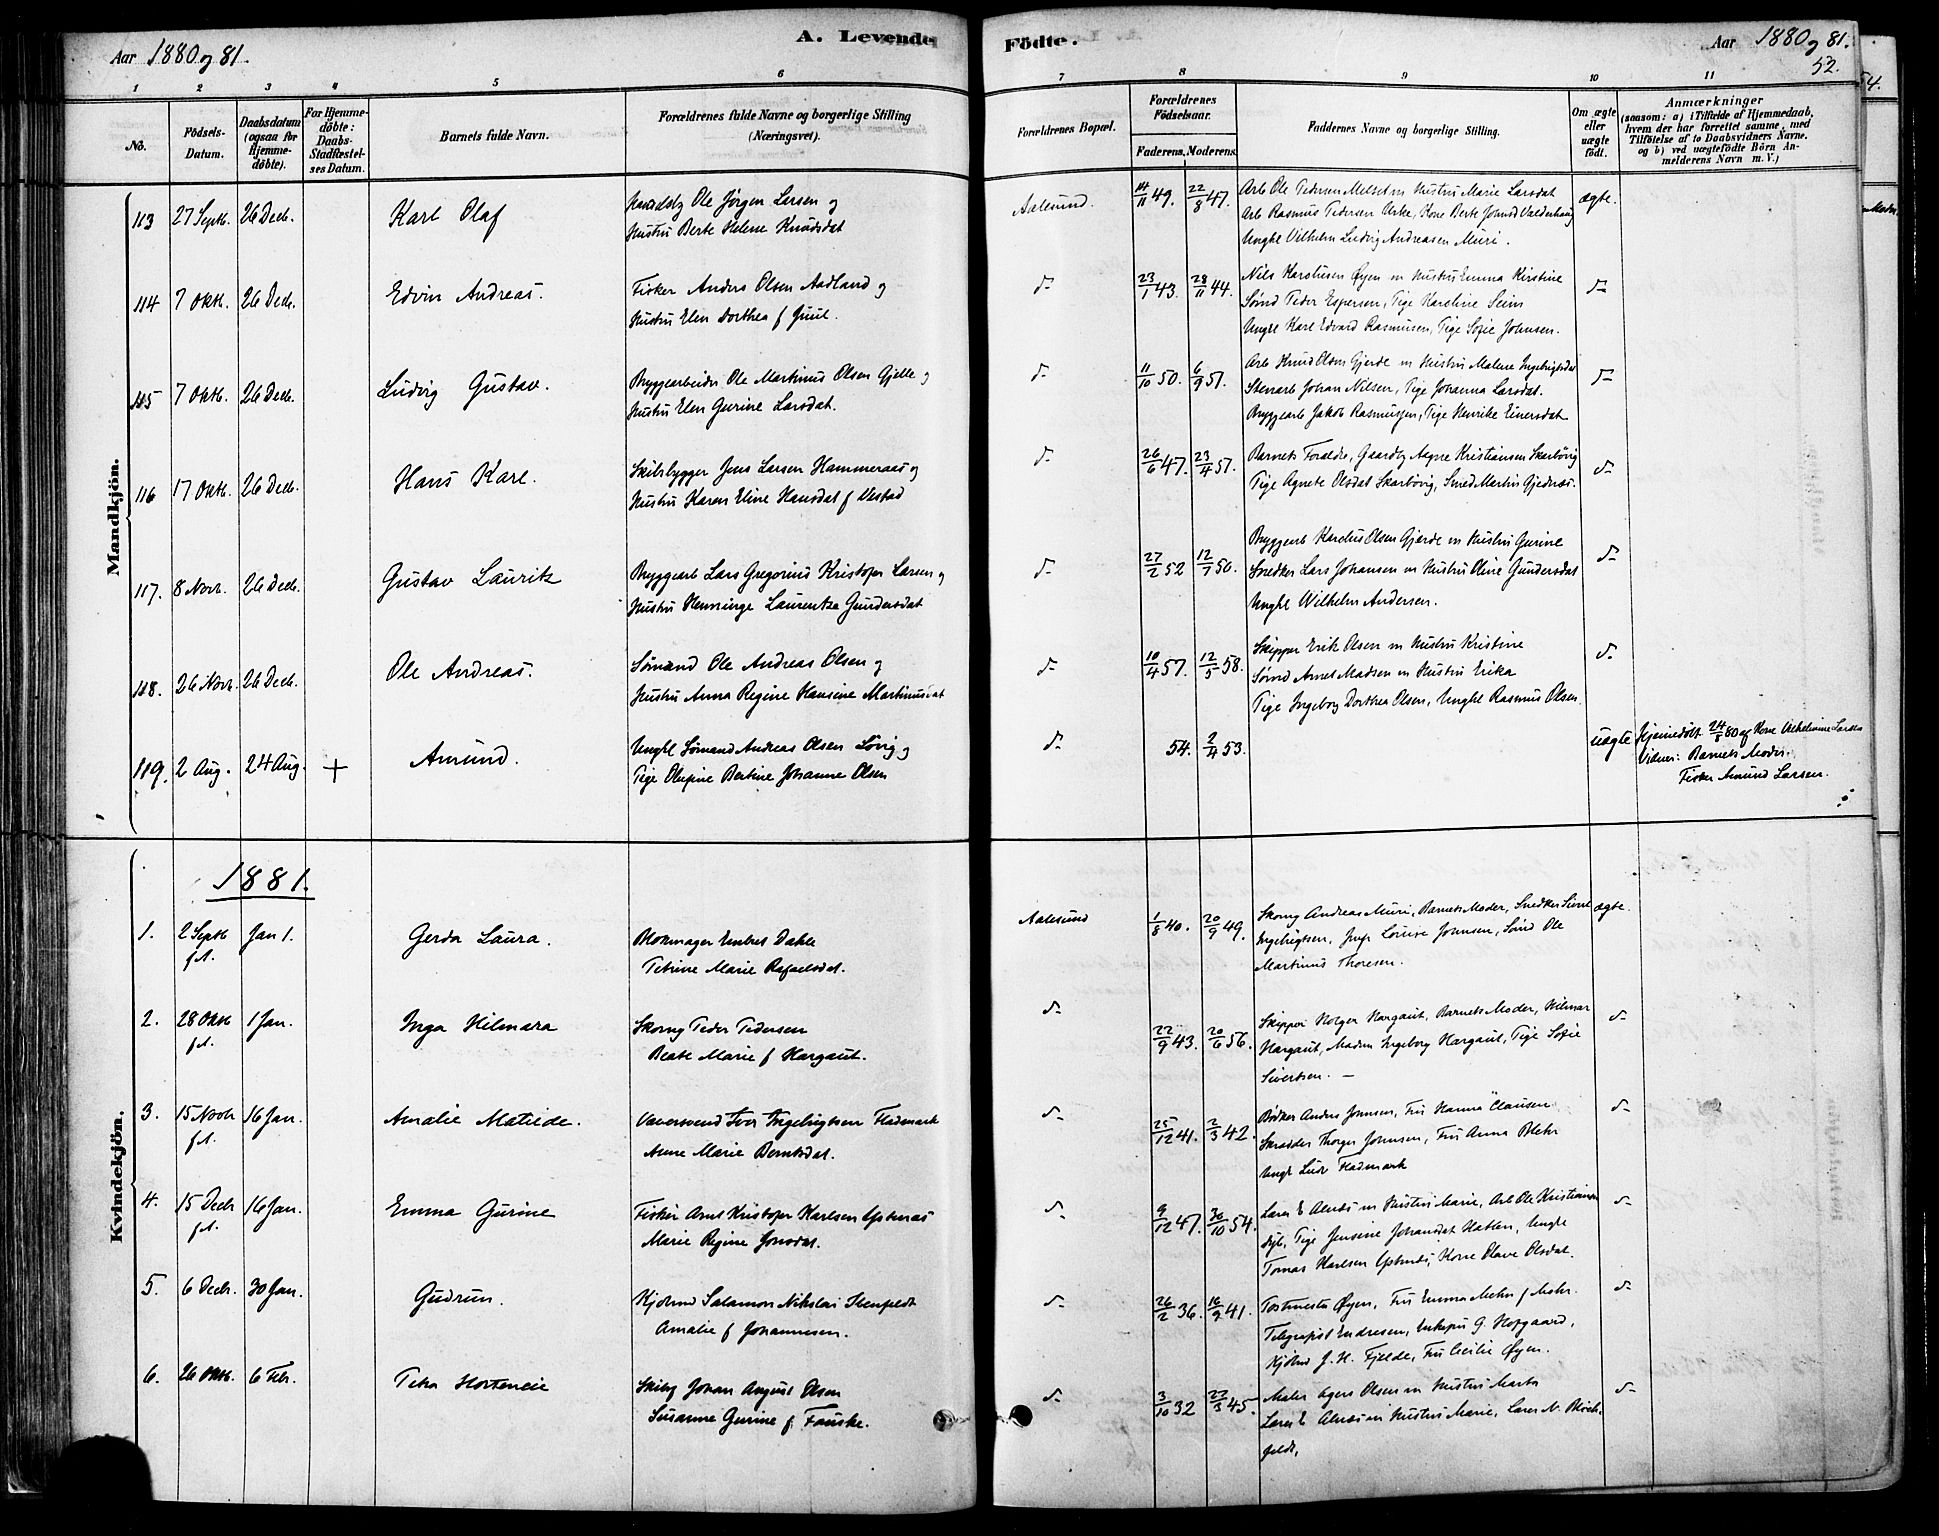 Aar 1880 og 81.
A. Levende
Födte.
Aar 1880 og 81.
52.
54.
1 2 3 4 5 6 7 8 9 10 11
No.
Födsels-Datum.
Daabsdatum (ogsaa for Hjemme-döbte).
For Hjemme-döbte: Daabs-Stadfæstel-ses Datum.
Barnets fulde Navn.
Forældrenes fulde Navne og borgerlige Stilling (Næringsvei).
Forældrenes Bopæl.
Forældrenes Födselsaar.
Faderens. Moderens.
Faddernes Navne og borgerlige Stilling.
Om ægte eller uægte födt.
Anmærkninger
(saasom: a) i Tilfælde af Hjemmedaab, hvem der har forrettet samme, med Tilföielse af to Daabsvidners Navne. og b) ved uægtefödte Börn An-melderens Navn m. V.)
Mandkjön.
113 27 Septb. 26 Decb. Karl Olaf
Ole Jørgen Larsen og
Hustru Berte Helene Knudsdat
Aalesund. 14/11 49. 22/8 47.
Arb Ole Pedersen Hustru Marie Larsdat
Arb Rasmus Pedersen Urke, Kone Berte Valderhaug
Ungkl Vilhelm Ludvig Andreasen Muri.
ægte.
114 7 Oktb. 26 Decb. Edvin Andreas.
Fisker Anders Olsen Aadland og
Hustru Elen Dorthea f Juul.
do 23/1 43. 28/11 44.
Nils Karolusen Øyen m Hustru Emma Kirstine
Sømd Peder Espersen, Pige Karoline Seim
Ungkl Karl Edvard Rasmusen, Pige Sofie Johnsen.
do
115 7 Oktb. 26 Decb. Ludvig Gustav.
Bryggearbeider Ole Martinus Olsen Gjelle og
Hustru Elen Gurine Larsdat.
do 11/10 50. 6/9 51.
Arb Knud Olsen Gjerde m Hustru Malene Ingebrigtsdat
Stenarb Johan Nilsen, Pige Johanna Larsdat.
Bryggearb Jakob Rasmussen, Pige Henrike Einersdat
do
116 17 Oktb. 26 Decb. Hans Karl.
Skibsbygger Jens Larsen Hammeraas og
Hustru Karen Eline Hansdat f Vestad
do 26/6 47. 23/4 51.
Barnets Forældre, Gaardbr Kristiansen Skarbövig
Pige Agnete Olsdat Skarbövig, Smed Martin Gjedenes.
do
117. 8 Novb. 26 Decb. Gustav Lauritz
Bryggearb Lars Gregorius Kristofer Larsen og
Hustru Henninge Laurentze Gundersdat
do 27/2 52 12/1 50.
Bryggearb Karolus Olsen Gjerde m Hustru Gurine
Snedker Lars Johansen m Hustru Oline Gundersdat
Ungkl Wilhelm Andersen.
do
118. 26 Novb. 26 Decb. Ole Andreas.
Sømand Ole Andreas Olsen og
Hustru Anna Regine Hansine Martinusdat
do 10/4 57. 12/5 58.
Skipper Erik Olsen m Hustru Kristine
Sømd Arnt Madsen m Hustru Erika
Pige Ingeborg Dorthea Olsen, Ungkl Rasmus Olsen
do
119. 2 Aug. 24 Aug. + Amund.
Ungkl Sømand Andreas Olsen Løvig og
Pige Olufine Bertine Johanne Olsen
do 54. 2/4 53.
uægte
Hjemmedøbt 24/8 80 af Kone Vilhelmine Larsen
Vidner: Barnets Moder.
Fisker Amund Larsen.
1881.
Kvindekjön.
1. 2 Septb f.A. Jan 1. Gerda Laura.
Blokmager Embret Dahle
Petrine Marie Rafaelsdat.
Aalesund 1/8 40. 20/9 49.
Skomg Andreas Muri, Barnets Moder, Snedker Sivert
Ingebrigtsen, Jmfr Louise Johnsen, Sömd Ole
Martinus Thoresen.
ægte.
2. 28 Oktb f.A. 1 Jan. Inga Hilmara
Skomg Peder Pedersen
Beate Marie f Hargaut.
do 22/9 43. 20/6 56.
Skipper Holger Hargaut, Barnets Moder, Hilmar
Hargaut, Madam Ingeborg Hargaut, Pige Sofie
Sivertsen. —
do
3. 15 Novb f.A. 16 Jan. Amalie Matilde.
Iver Ingebrigtsen Flademark
Anne Marie Berntsdat.
do 25/12 41. 2/3 42.
Bödker Anders Johnsen, Fru Hanna Clausen
Skrædder Thorger Johnsen, Fru Anna Blehr
Ungk Ludv Flademark
do
4. 15 Decb f.A. 16 Jan. Emma Gurine
Fisker Arnt Kristofer Karlsen Ystenæs
Marie Regine Jonsdat.
do 9/12 47. 30/10 54.
Lars E Alnæs m Hustru Marie, Arb Ole Kristiansen
Pige Jensine Johansdat Hatlen, Ungkl
Tomas Karlsen Ystenæs, Kone Olave Olsdat.
do
5. 6 Decb. 30 Jan. Gudrun.
Kjöbmd Salamon Nikolai
Amalie f Johannesen.
do 26/2 36. 16/9 41.
Postmester Øyen, Fru Emma f Mohr.
Telegrafist Endresen, Enkefru G. Hofgaard,
Kjöbmd J. H. Fjelde, Fru Cecilie Øyen.
do
6. 26 Oktb. 6 Feb. Petra Hortensie
Skibsf Johan August Olsen
Susanne Gurine f. Fauske.
do 3/10 32 23/3 45.
Maler Olsen m Hustru Marta
Lars E Alnæs m Hustru Marie, Lars N.
do